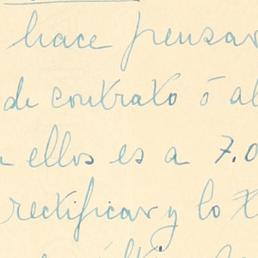 hace pensar
de contrato ó al
ellos es a 7.0
rectificar y lo